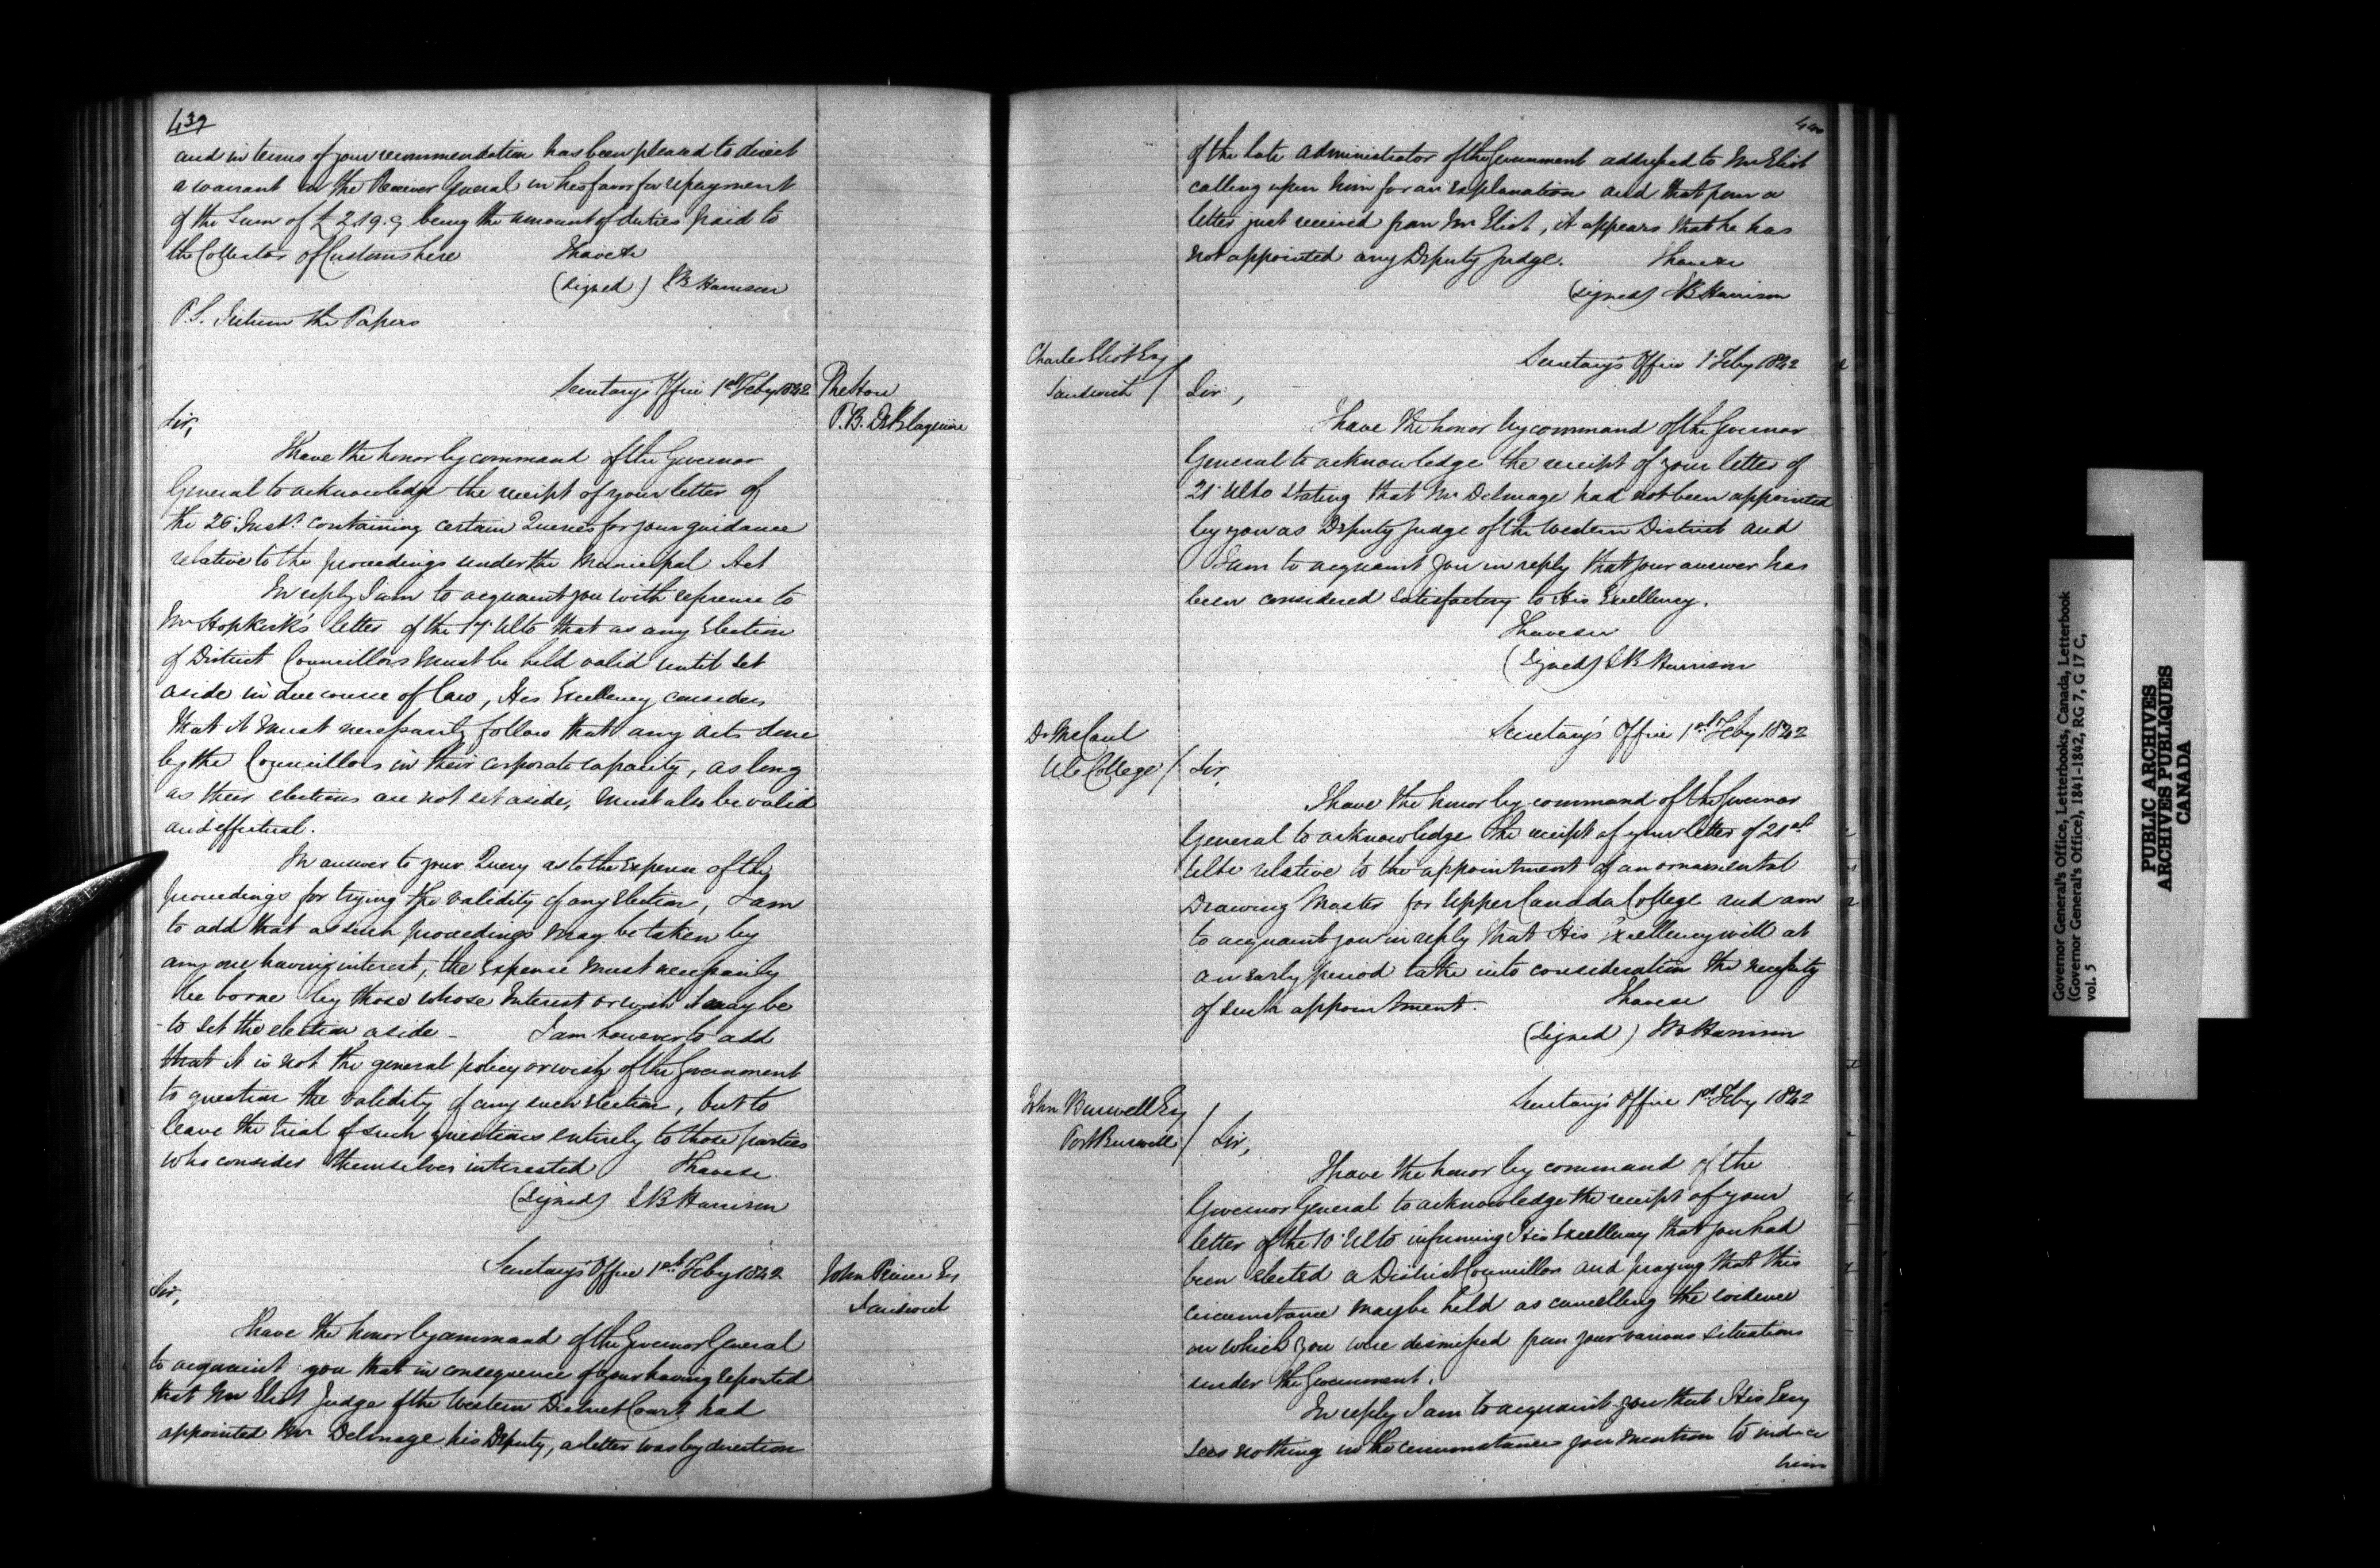 439
and in terms of your recommendation has been pleased to direct
a warrant on the Receiver General in his favor for repayment
of the Sum of £2.19.9 being the amount of duties paid to
the Collector of Customs here I have &c
(signed) S B Harrison
P.S. Return the Papers
Secretary's Office 1st Feby 1842
The Hon
P. B. De Blaquiere
Sir,
I have the honor by command of the Governor
General to acknowledge the receipt of your letter of
the 26 Inst. containing certain Queries for your guidance
relative to the proceedings under the Municipal Act
In reply I am to acquaint you with reference to
Mr Hopkirk's letter of the 17 Ulto that as any Election
of District Councillors must be held valid until set
aside in due course of law, His Excellency considers
that it must necessarily follow that any acts done
by the Councillors in their corporate capacity, as long
as their elections are not set aside, must also be valid
and effectual.
In answer to your Query as to the expense of the
proceedings for trying the validity of any Election, I am
to add that as such proceedings may be taken by
any one having interest, the expense must necessarily
be borne by those whose Interest or wish it may be
to set the election aside - I am however to add
that it is not the general policy or wish of the Government
to question the validity of any such election, but to
leave the trial of such questions entirely to those parties
who consider themselves interested I have &c
(signed) S B Harrison
Secretary's Office 1st Feby 1842
John Prince Esq
Sandwich
Sir,
I have the honor by command of the Governor General
to acquaint you that in consequence of your having reported
that Mr Eliot Judge of the Western District Court had
appointed Mr Delmage his Deputy, a letter was by direction
440
of the late Administrator of the Government addressed to Mr Eliot
calling upon him for an explanation and that from a
letter just received from Mr Eliot, it appears that he has
not appointed any Deputy Judge. I have &c
(signed) S B Harrison
Charles Eliot Esq
Sandwich
Secretary's Office 1 Feby 1842
Sir,
I have the honor by command of the Governor
General to acknowledge the receipt of your letter of
21 Ulto stating that Mr Delmage had not been appointed
by you as Deputy Judge of the Western District and
I am to acquaint you in reply that your answer has
been considered satisfactory to His Excellency.
I have &c
(signed) S B Harrison
Dr McCaul
U C College
Secretary's Office 1st Feby 1842
Sir,
I have the honor by command of the Governor
General to acknowledge the receipt of your letter of 21st
Ulto relative to the appointment of an ornamental
Drawing Master for Upper Canada College and am
to acquaint you in reply that His Excellency will at
an early period take into consideration the necessity
of such appointment. I have &c
(signed) S B Harrison
John Burwell Esq
Port Burwell
Secretary's Office 1st Feby 1842
Sir,
I have the honor by command of the
Governor General to acknowledge the receipt of your
letter of the 10 Ulto informing His Excellency that you had
been elected a District Councillor and praying that this
circumstance may be held as cancelling the evidence
on which you were dismissed from your various situations
under the Government.
In reply I am to acquaint you that His Excy
sees nothing in the circumstances you mention to induce
him
Governor General's Office, Letterbooks, Canada, Letterbook
(Governor General's Office), 1841-1842, RG 7, G 17 C,
vol. 5
PUBLIC ARCHIVES
ARCHIVES PUBLIQUES
CANADA